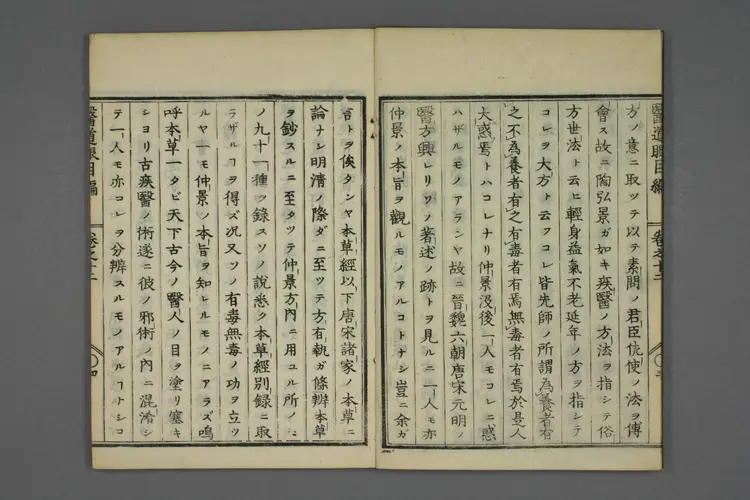 醫道眼目編 卷之十二 〇三
方ノ意ニ取ツテ以テ素問ノ君臣佐使ノ法ヲ傳
會ス故ニ陶弘景ガ如キ疾醫ノ方法ヲ指シテ俗
方世法ト云ヒ輕身益氣不老延年ノ方ヲ指シテ
コレヲ大方ト云フコレ皆先師ノ所謂爲養者有
之不爲養者有之有毒者有焉無毒者有焉於是人
大惑焉トハコレナリ仲景沒後一人モコレニ惑
ハザルモノアランヤ故ニ晉魏六朝唐宋元明ノ
醫方興レリソノ著述ノ跡トヲ見ルニ一人モ亦
仲景ノ本旨ヲ觀ルモノアルコトナシ豈ニ余ガ
言トヲ俟タンヤ本草經以下唐宋諸家ノ本草ニ
論ナシ明清ノ際ダニ至ツテ方有執ガ條辨本草
ヲ鈔スルニ至タツテ仲景方內ニ用ユル所ノ
ノ九十一種ヲ録スソノ説悉ク本草經別録ニ取
ラザルヿヲ得ズ況又ソノ有毒無毒ノ功ヲ立ツ
ルヤ一モ仲景ノ本旨ヲ知レルモノニアラズ嗚
呼本草一タビ天下古今ノ醫人ノ目ヲ塗リ塞キ
シヨリ古疾醫ノ術遂ニ彼ノ邪術ノ內ニ混淆シ
テ一人モ亦コレヲ分辨スルモノアルヿナシコ
醫道眼目編 卷之十二 〇四